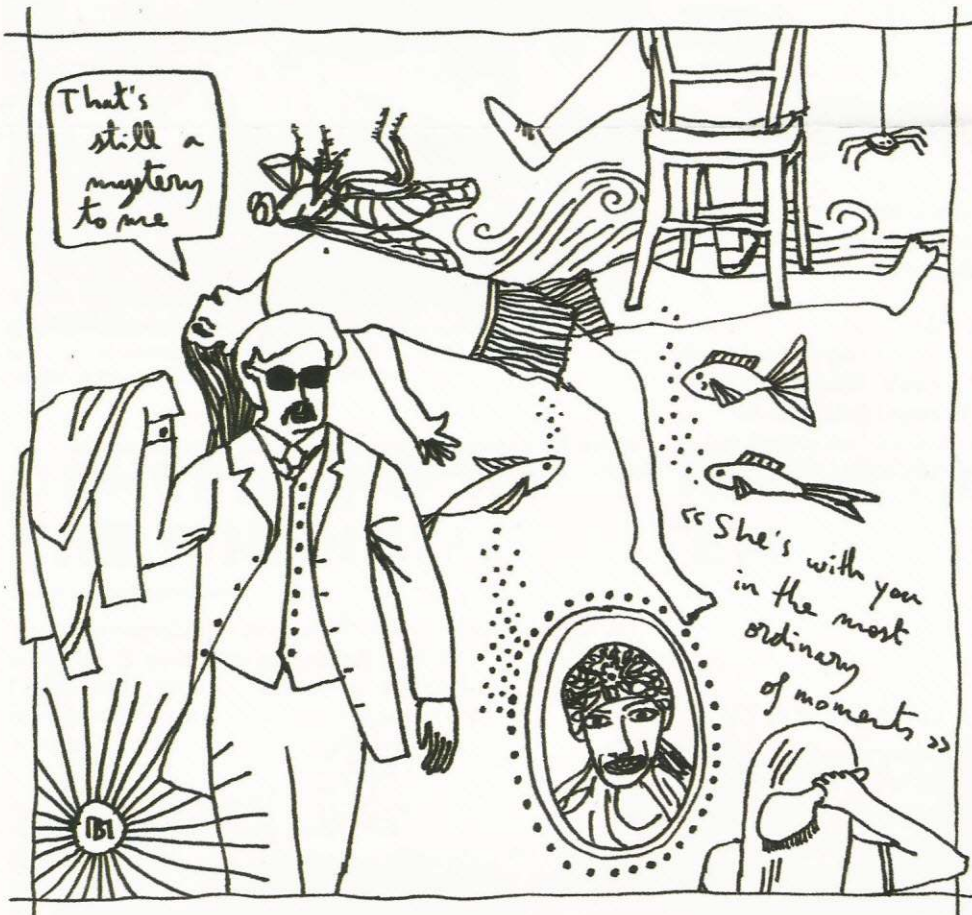 That's
still a
mystery
to me
« She's with you
in the most
ordinary
of moments »